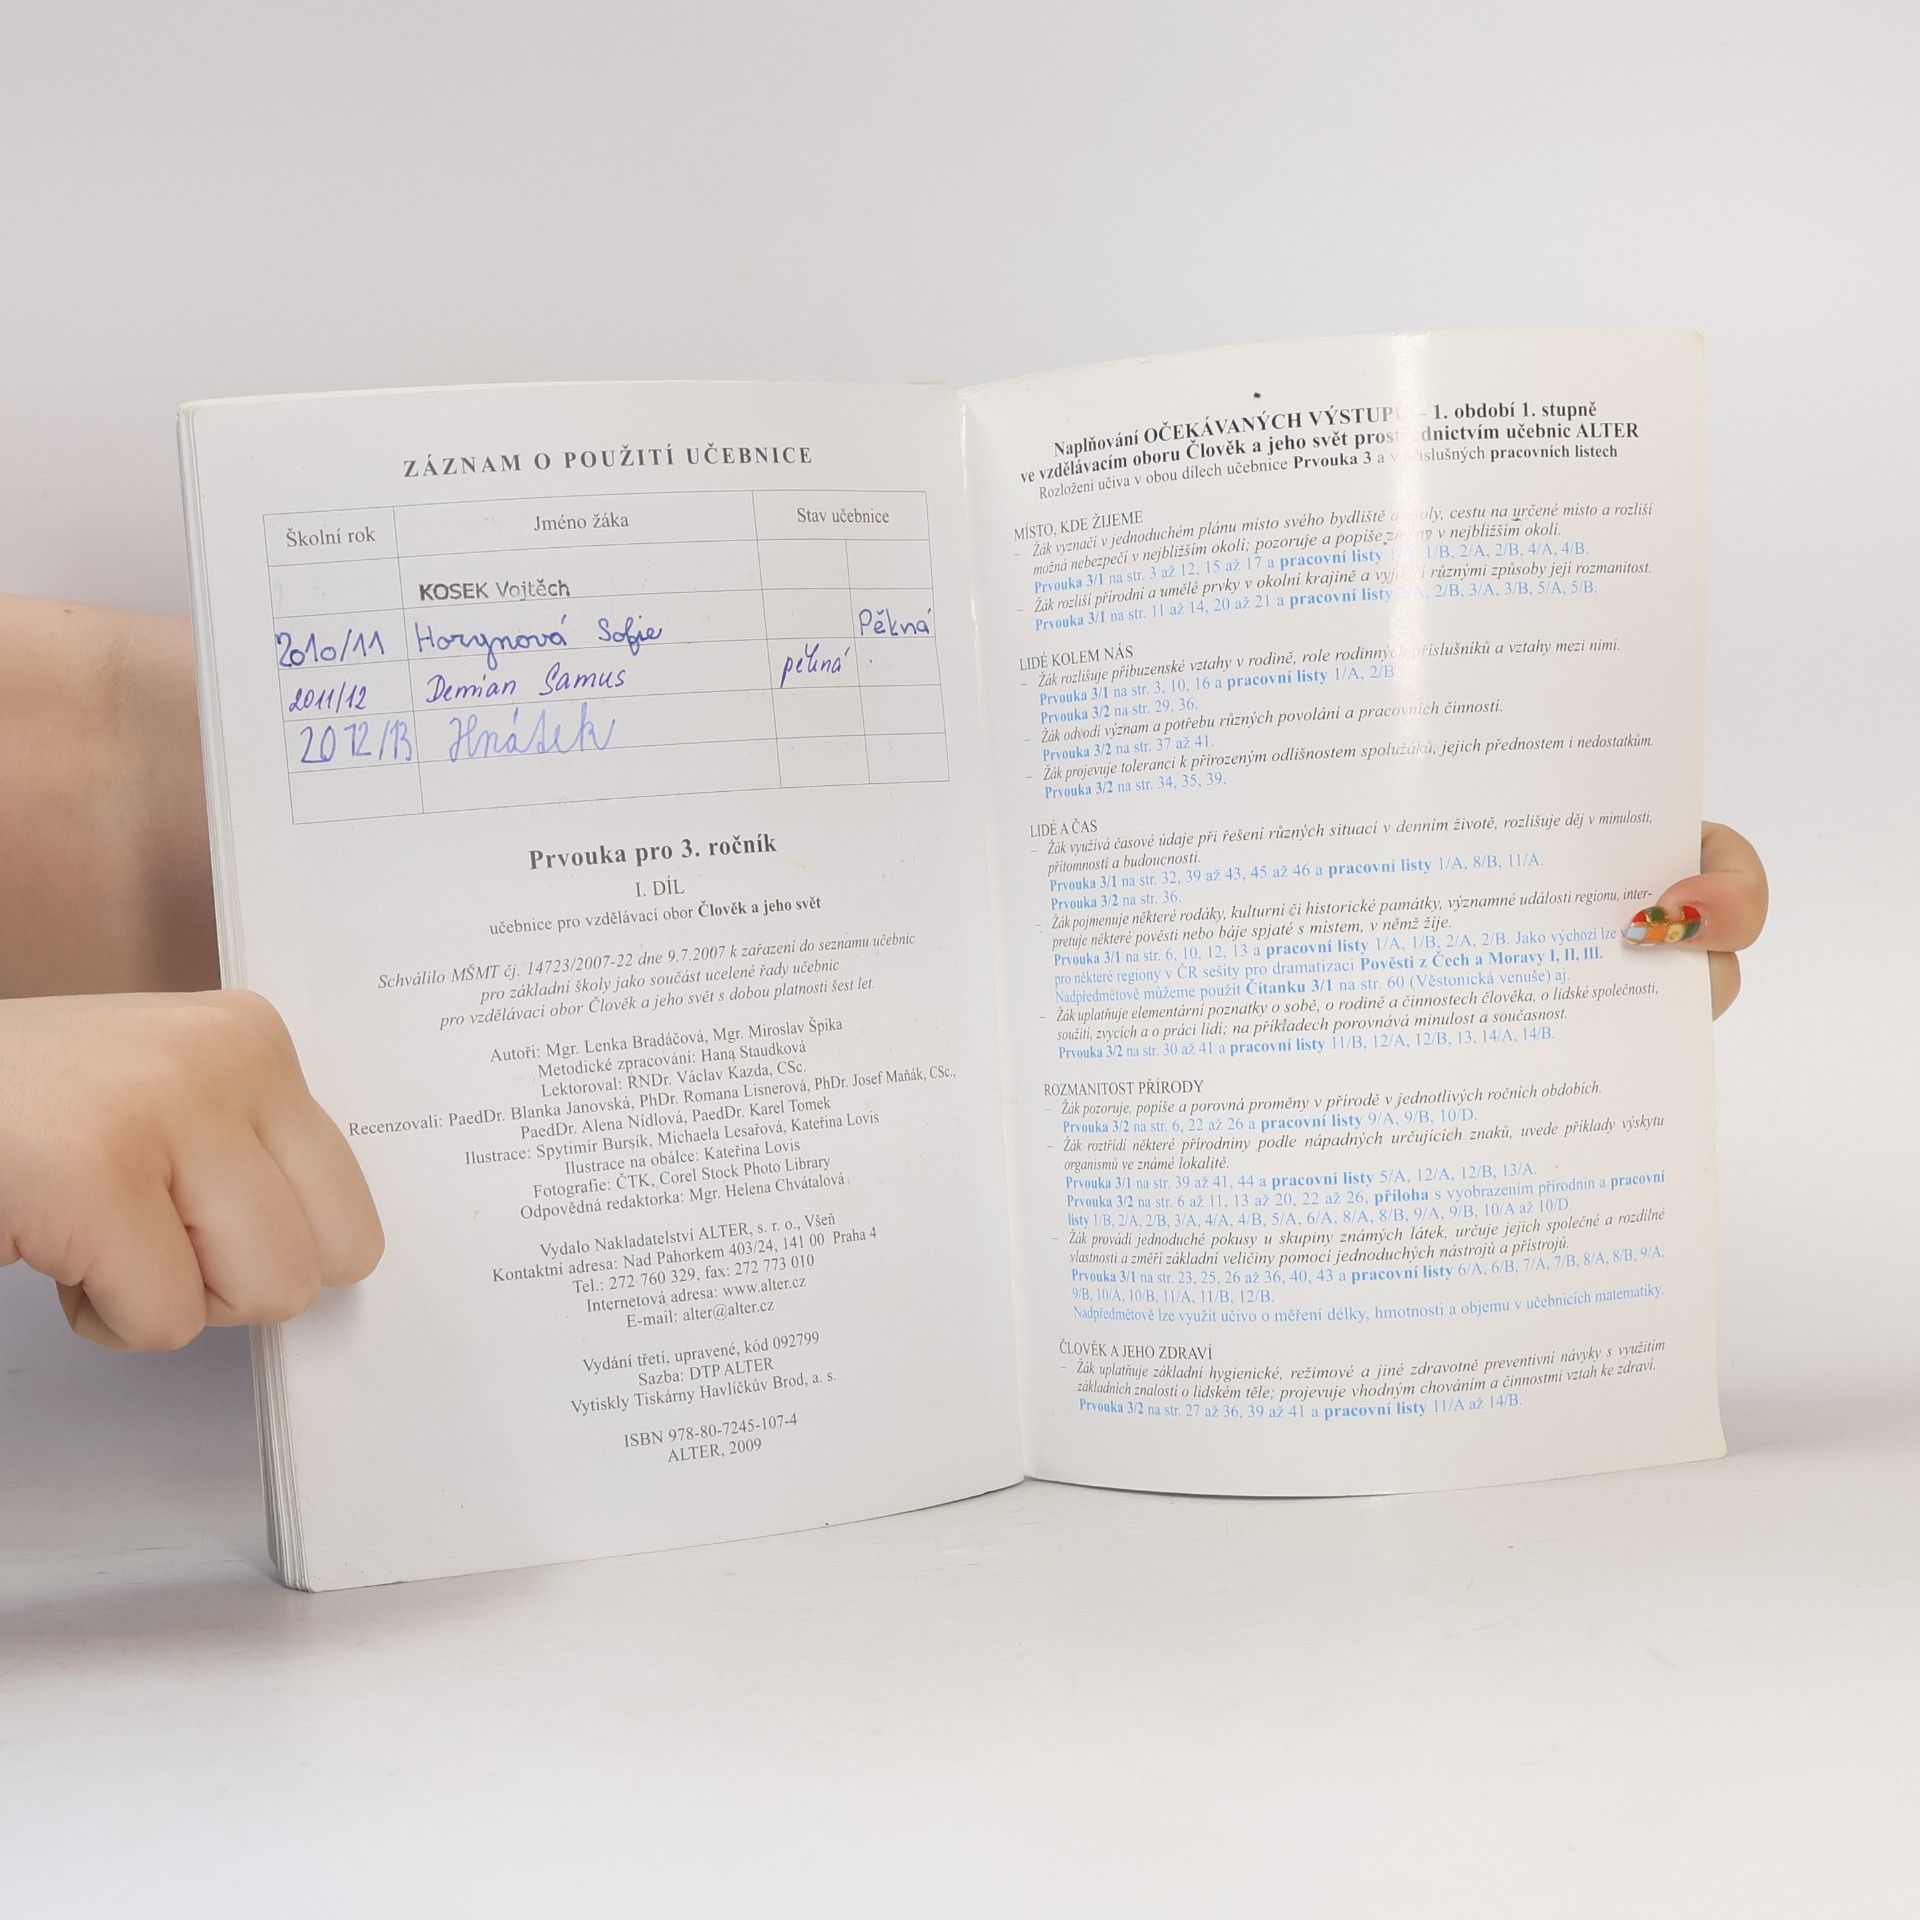 ZÁZNAM O POUŽITÍ UČEBNICE
Školní rok Jméno žáka Stav učebnice
KOSEK Vojtěch
2010/11 Horynová Sofie Pěkná
2011/12 Demian Samus pěkná
2012/13 Hnátek
Prvouka pro 3. ročník
I. DÍL
učebnice pro vzdělávací obor Člověk a jeho svět
Schválilo MŠMT čj. 14723/2007-22 dne 9.7.2007 k zařazení do seznamu učebnic
pro základní školy jako součást ucelené řady učebnic
pro vzdělávací obor Člověk a jeho svět s dobou platnosti šest let.
Autoři: Mgr. Lenka Bradáčová, Mgr. Miroslav Špika
Metodické zpracování: Hana Staudková
Lektoroval: RNDr. Václav Kazda, CSc.
Recenzovali: PaedDr. Blanka Janovská, PhDr. Romana Lisnerová, PhDr. Josef Maňák, CSc.,
PaedDr. Alena Nídlová, PaedDr. Karel Tomek
Ilustrace: Spytimír Bursík, Michaela Lesařová, Kateřina Lovis
Ilustrace na obálce: Kateřina Lovis
Fotografie: ČTK, Corel Stock Photo Library
Odpovědná redaktorka: Mgr. Helena Chvátalová
Vydalo Nakladatelství ALTER, s. r. o., Všeň
Kontaktní adresa: Nad Pahorkem 403/24, 141 00 Praha 4
Tel.: 272 760 329, fax: 272 773 010
Internetová adresa: www.alter.cz
E-mail: alter@alter.cz
Vydání třetí, upravené, kód 092799
Sazba: DTP ALTER
Vytiskly Tiskárny Havlíčkův Brod, a. s.
ISBN 978-80-7245-107-4
ALTER, 2009
Naplňování OČEKÁVANÝCH VÝSTUPŮ – 1. období 1. stupně
ve vzdělávacím oboru Člověk a jeho svět prostřednictvím učebnic ALTER
Rozložení učiva v obou dílech učebnice Prvouka 3 a v příslušných pracovních listech
MÍSTO, KDE ŽIJEME
– Žák vyznačí v jednoduchém plánu místo svého bydliště a školy, cestu na určené místo a rozliší
možná nebezpečí v nejbližším okolí; pozoruje a popíše změny v nejbližším okolí.
Prvouka 3/1 na str. 3 až 12, 15 až 17 a pracovní listy 1/A, 1/B, 2/A, 2/B, 4/A, 4/B.
– Žák rozliší přírodní a umělé prvky v okolní krajině a vyjádří různými způsoby její rozmanitost.
Prvouka 3/1 na str. 11 až 14, 20 až 21 a pracovní listy 2/A, 2/B, 3/A, 3/B, 5/A, 5/B.
LIDÉ KOLEM NÁS
– Žák rozlišuje příbuzenské vztahy v rodině, role rodinných příslušníků a vztahy mezi nimi.
Prvouka 3/1 na str. 3, 10, 16 a pracovní listy 1/A, 2/B.
Prvouka 3/2 na str. 29, 36.
– Žák odvodí význam a potřebu různých povolání a pracovních činností.
Prvouka 3/2 na str. 37 až 41.
– Žák projevuje toleranci k přirozeným odlišnostem spolužáků, jejich přednostem i nedostatkům.
Prvouka 3/2 na str. 34, 35, 39.
LIDÉ A ČAS
– Žák využívá časové údaje při řešení různých situací v denním životě, rozlišuje děj v minulosti,
přítomnosti a budoucnosti.
Prvouka 3/1 na str. 32, 39 až 43, 45 až 46 a pracovní listy 1/A, 8/B, 11/A.
Prvouka 3/2 na str. 36.
– Žák pojmenuje některé rodáky, kulturní či historické památky, významné události regionu, inter-
pretuje některé pověsti nebo báje spjaté s místem, v němž žije.
Prvouka 3/1 na str. 6, 10, 12, 13 a pracovní listy 1/A, 1/B, 2/A, 2/B. Jako výchozí lze
pro některé regiony v ČR sešity pro dramatizaci Pověsti z Čech a Moravy I, II, III.
Nadpředmětově můžeme použít Čítanku 3/1 na str. 60 (Věstonická venuše) aj.
– Žák uplatňuje elementární poznatky o sobě, o rodině a činnostech člověka, o lidské společnosti,
soužití, zvycích a o práci lidí; na příkladech porovnává minulost a současnost.
Prvouka 3/2 na str. 30 až 41 a pracovní listy 11/B, 12/A, 12/B, 13, 14/A, 14/B.
ROZMANITOST PŘÍRODY
– Žák pozoruje, popíše a porovná proměny v přírodě v jednotlivých ročních obdobích.
Prvouka 3/2 na str. 6, 22 až 26 a pracovní listy 9/A, 9/B, 10/D.
– Žák roztřídí některé přírodniny podle nápadných určujících znaků, uvede příklady výskytu
organismů ve známé lokalitě.
Prvouka 3/1 na str. 39 až 41, 44 a pracovní listy 5/A, 12/A, 12/B, 13/A.
Prvouka 3/2 na str. 6 až 11, 13 až 20, 22 až 26, příloha s vyobrazením přírodnin a pracovní
listy 1/B, 2/A, 2/B, 3/A, 4/A, 4/B, 5/A, 6/A, 8/A, 8/B, 9/A, 9/B, 10/A až 10/D.
– Žák provádí jednoduché pokusy u skupiny známých látek, určuje jejich společné a rozdílné
vlastnosti a změří základní veličiny pomocí jednoduchých nástrojů a přístrojů.
Prvouka 3/1 na str. 23, 25, 26 až 36, 40, 43 a pracovní listy 6/A, 6/B, 7/A, 7/B, 8/A, 8/B, 9/A,
9/B, 10/A, 10/B, 11/A, 11/B, 12/B.
Nadpředmětově lze využít učivo o měření délky, hmotnosti a objemu v učebnicích matematiky.
ČLOVĚK A JEHO ZDRAVÍ
– Žák uplatňuje základní hygienické, režimové a jiné zdravotně preventivní návyky s využitím
základních znalostí o lidském těle; projevuje vhodným chováním a činnostmi vztah ke zdraví.
Prvouka 3/2 na str. 27 až 36, 39 až 41 a pracovní listy 11/A až 14/B.